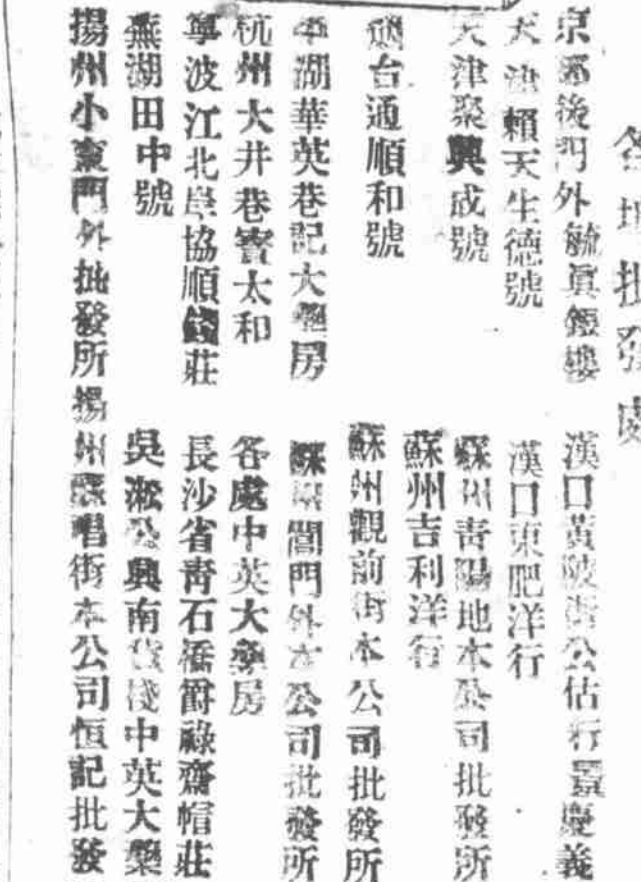 各埠批發處
京都後門外毓眞鏡樓
漢口黃陂街公估行景慶義
天津賴天生德號
漢口東肥洋行
天津聚興成號
蘇州青陽地本公司批發所
蘇州吉利洋行
烟台通順和號
蘇州觀前街本公司批發所
平湖華英巷記大藥房
蘇州閶門外本公司批發所
杭州大井巷寶太和
各處中英大藥房
寧波江北岸協順錢莊
長沙省青石橋爵祿齋帽莊
蕪湖田中號
吳淞公興南貨棧中英大藥
揚州小東門外批發所
揚州 唱街本公司恒記批發